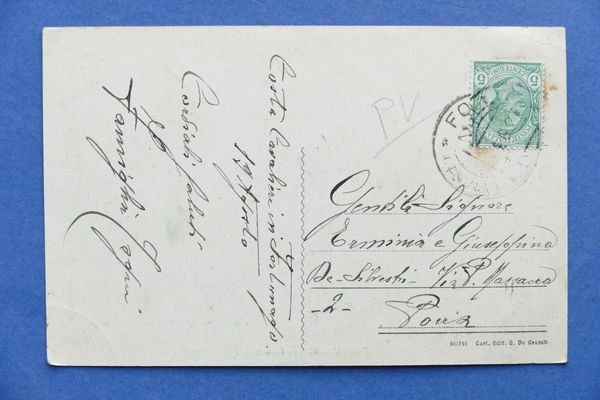 Costa Cavalieri in Fortunago.
17 Agosto
Cordiali Saluti
Famiglia
P.V
Gentili Signore
Erminia e Giuseppina
De-Silvestri - Via P. Massacra
-2-
Pavia
Cart. Edit. G. De Grandi
CENTESIMI
5
5
FO